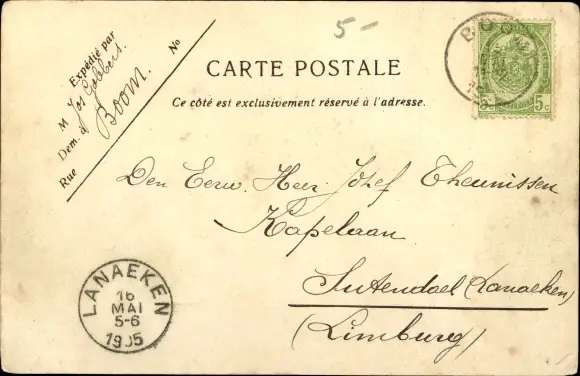 5-
Expédié par
M Jos Gobbers.
Dem. à Boom.
Rue
No
CARTE POSTALE
Ce côté est exclusivement réservé à l'adresse.
BOOM
5 5c
Den Eerw. Heer Jozef Theunissen
Kapelaan
Sutendael (Lanaeken)
(Limburg)
LANAEKEN
16
MAI
5-6
1905